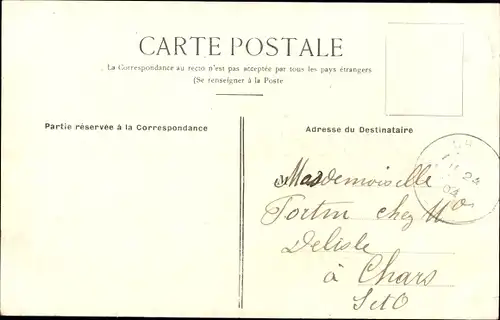 CARTE POSTALE
La Correspondance au recto n'est pas acceptée par tous les pays étrangers
(Se renseigner à la Poste
Partie réservée à la Correspondance
Adresse du Destinataire
24
04
Mademoiselle
Fortin chez Mr
Delisle
à Chars
S et O